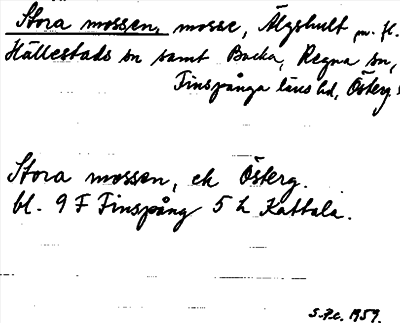 Stora mossen, mosse, Älgshult m. fl.
Hällestads sn samt Backa, Regna sn,
Finspånga läns hd, Österg.
Stora mossen, ek Österg.
bl. 9 F Finspång 5 h Kattala.
S.P.c. 1959.